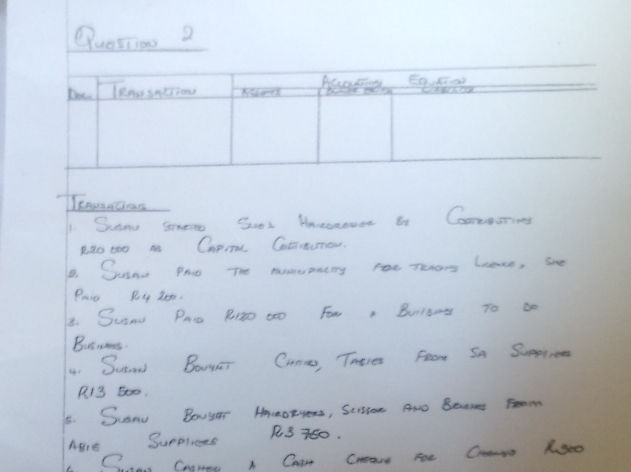 Question 2
Accounting Equation
Doc. Transaction Assets Owner Equity Liability
Transactions
1. Susan started Sue's Hairdresser by Contributing
R20 000 as Capital Contribution.
2. Susan Paid The municipality for Trading Licence, She
Paid R4 200.
3. Susan Paid R120 000 For a Building To do
Business.
4. Susan Bought Chairs, Tables From SA Suppliers
R13 500.
5. Susan Bought Hairdryers, Scissor and From
Able Suppliers R3 750.
6. Susan Cashed A Cash Cheque for R300